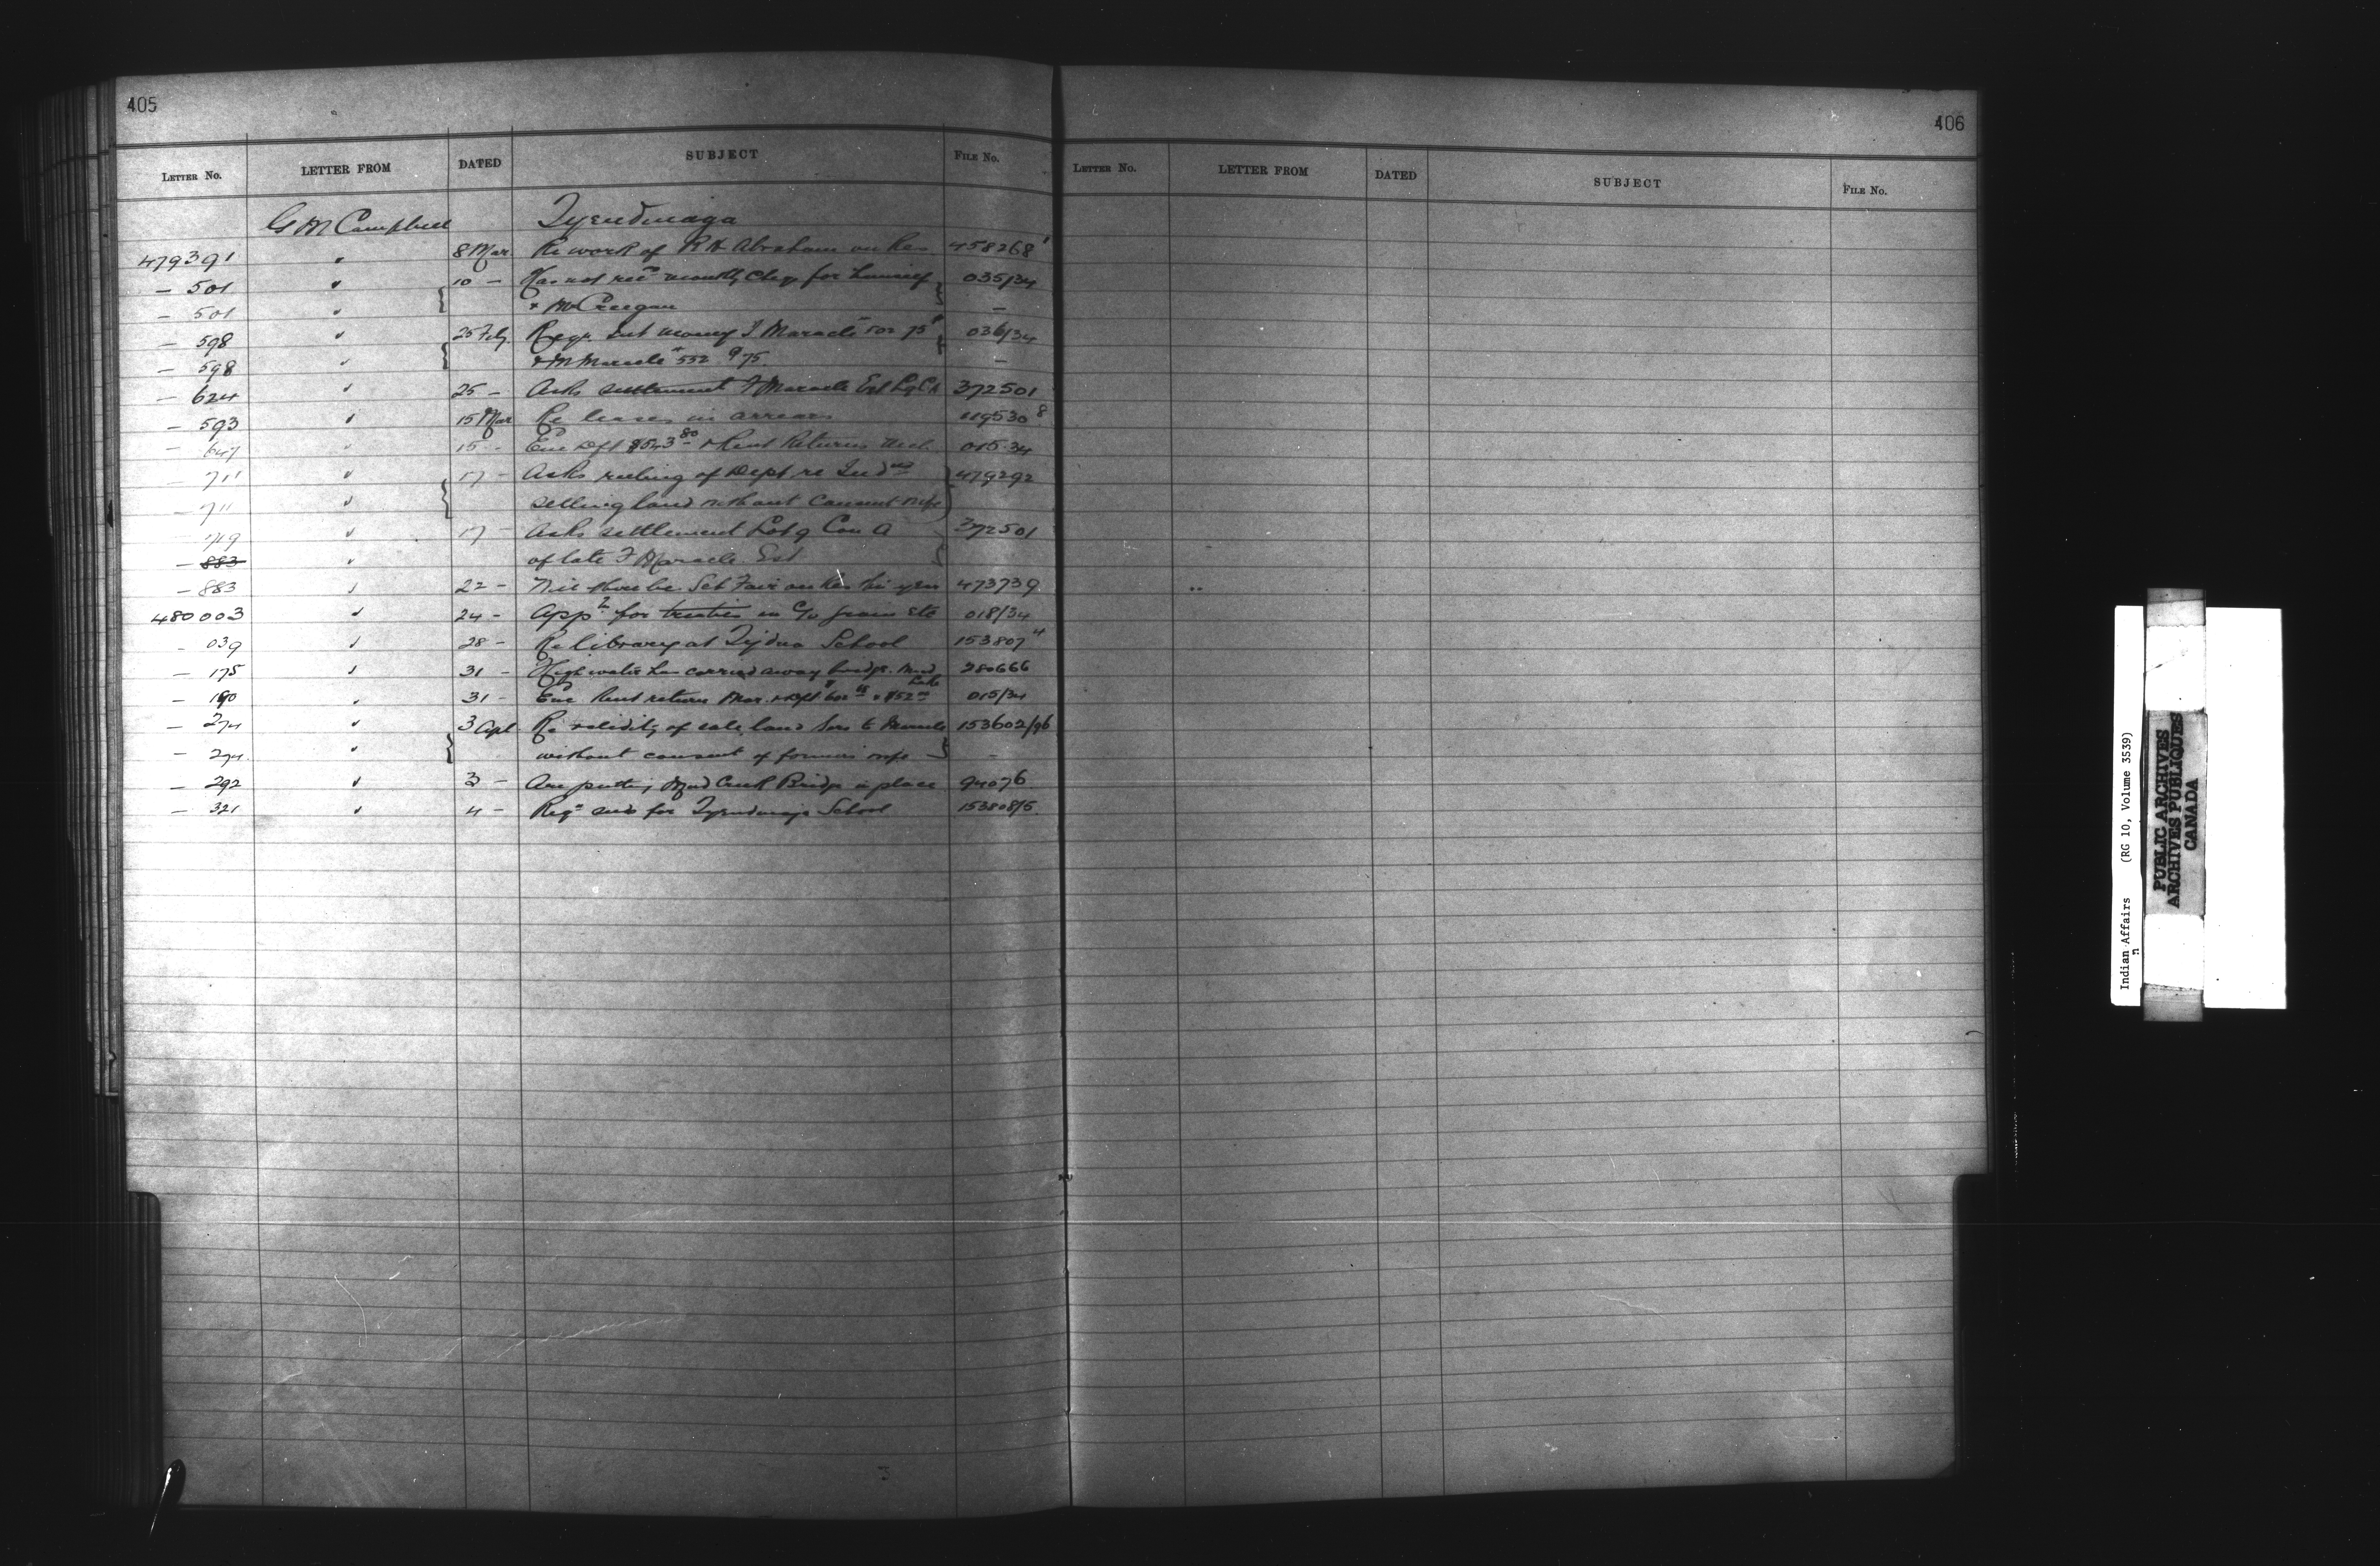 405
LETTER No. LETTER FROM DATED SUBJECT FILE No.
G M Campbell Tyendinaga
479391 " 8 Mar Re work of R H Abraham on Res 458268 1
— 501 " 10 — Has not recd monthly Chq. for himself 035/34
— 501 " & McCreegan —
— 598 " 25 Feby. Reqr. Int money I Maracle 502 75 036/34
— 598 " & M Maracle # 552 9 75 —
— 624 " 25 — Asks settlement F Maracle Est L 9 C A 372501
— 593 " 15 Mar Re leases in arrears 119530 8
— 647 " 15 — Enc Dft $543 80 & Rent Returns 015.34
— 711 " 17 — Asks ruling of Dept. re Indns 479292
— 711 " selling land without consent wife
— 719 " 17 — Asks settlement Lot 9 Con A 372501
— 883 " of late F Maracle Est
— 883 " 22 — Fair on Res this year 473739
480003 " 24 — App for in c/o 018/34
— 039 " 28 — Re library at Tydna School 153807 4
— 175 " 31 — High water has carried away bridge. Mud Lake 280666
— 190 " 31 — Enc Rent return Mar. & Dft 015/34
— 274 " 3 Apl Re validity of sale land Maracle 153602/96
— 274. " without consent of former wife —
— 292 " 3 — Are putting Mud Creek Bridge in place 94076
— 321 " 4 — Reqn for Tyendinaga School 153808/5.
406
LETTER No. LETTER FROM DATED SUBJECT FILE No.
Indian Affairs (RG 10, Volume 3539)
PUBLIC ARCHIVES
ARCHIVES PUBLIQUES
CANADA